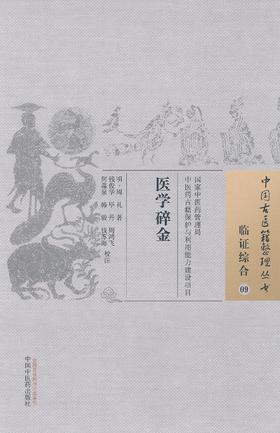 中国古医籍整理丛书
临证综合
09
国家中医药管理局
中医药古籍保护与利用能力建设项目
医学碎金
明·周 礼 著
钱俊华 毕 丹 周鸿飞
何森泉 韩 毅
校注
中国中医药出版社